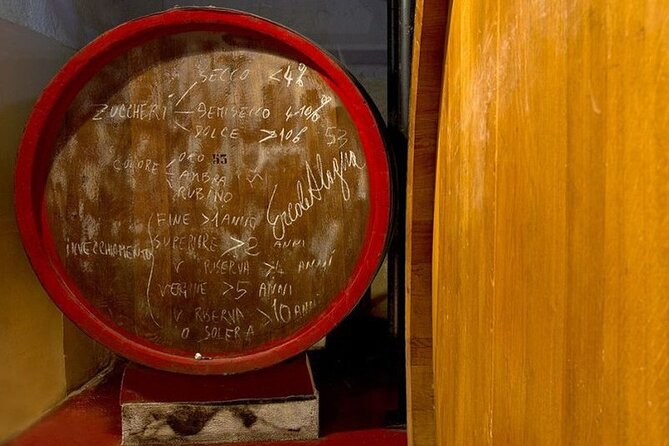 SECCO <4%
ZUCCHERI DEMISECCO 4-10%
DOLCE >10%
53
ORO 53
COLORE AMBRA
RUBINO
FINE >1 ANNO
SUPERIORE >2 ANNI
INVECCHIAMENTO
V RISERVA >4 ANNI
VERGINE >5 ANNI
V RISERVA >10 ANNI
O SOLERA